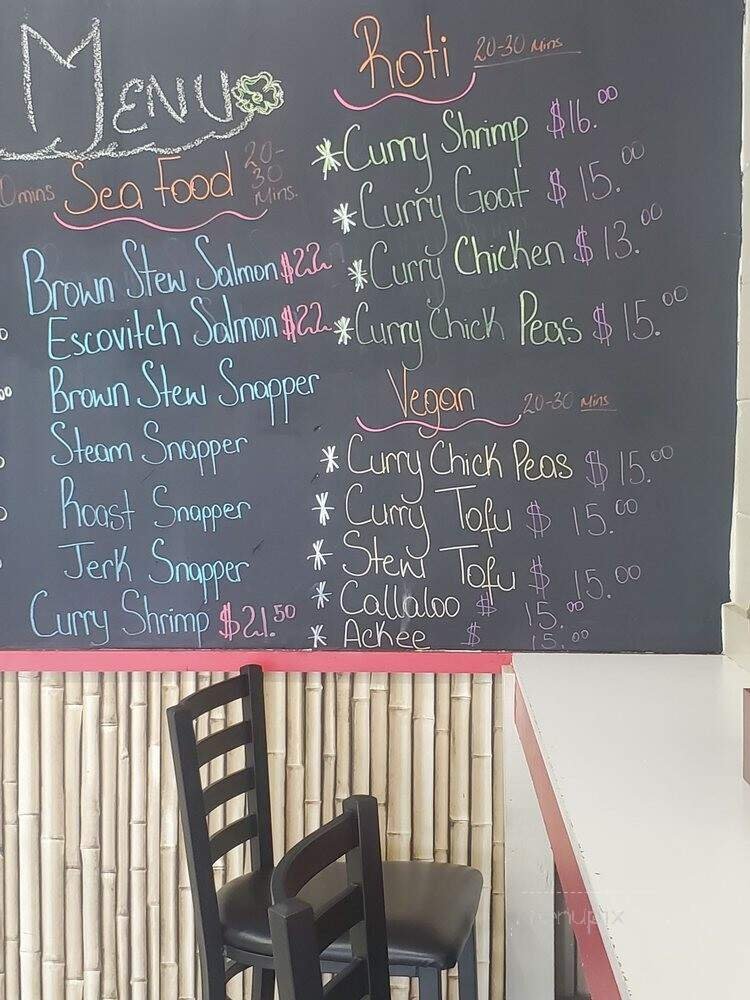 MENU
Sea Food 20-30 Mins.
mins
Brown Stew Salmon $22
Escovitch Salmon $22
Brown Stew Snapper
Steam Snapper
Roast Snapper
Jerk Snapper
Curry Shrimp $21.50
Roti 20-30 Mins
* Curry Shrimp $16.00
* Curry Goat $15.00
* Curry Chicken $13.00
* Curry Chick Peas $15.00
Vegan 20-30 Mins
* Curry Chick Peas $15.00
* Curry Tofu $15.00
* Stew Tofu $15.00
* Callaloo $15.00
* Ackee $15.00
menupix